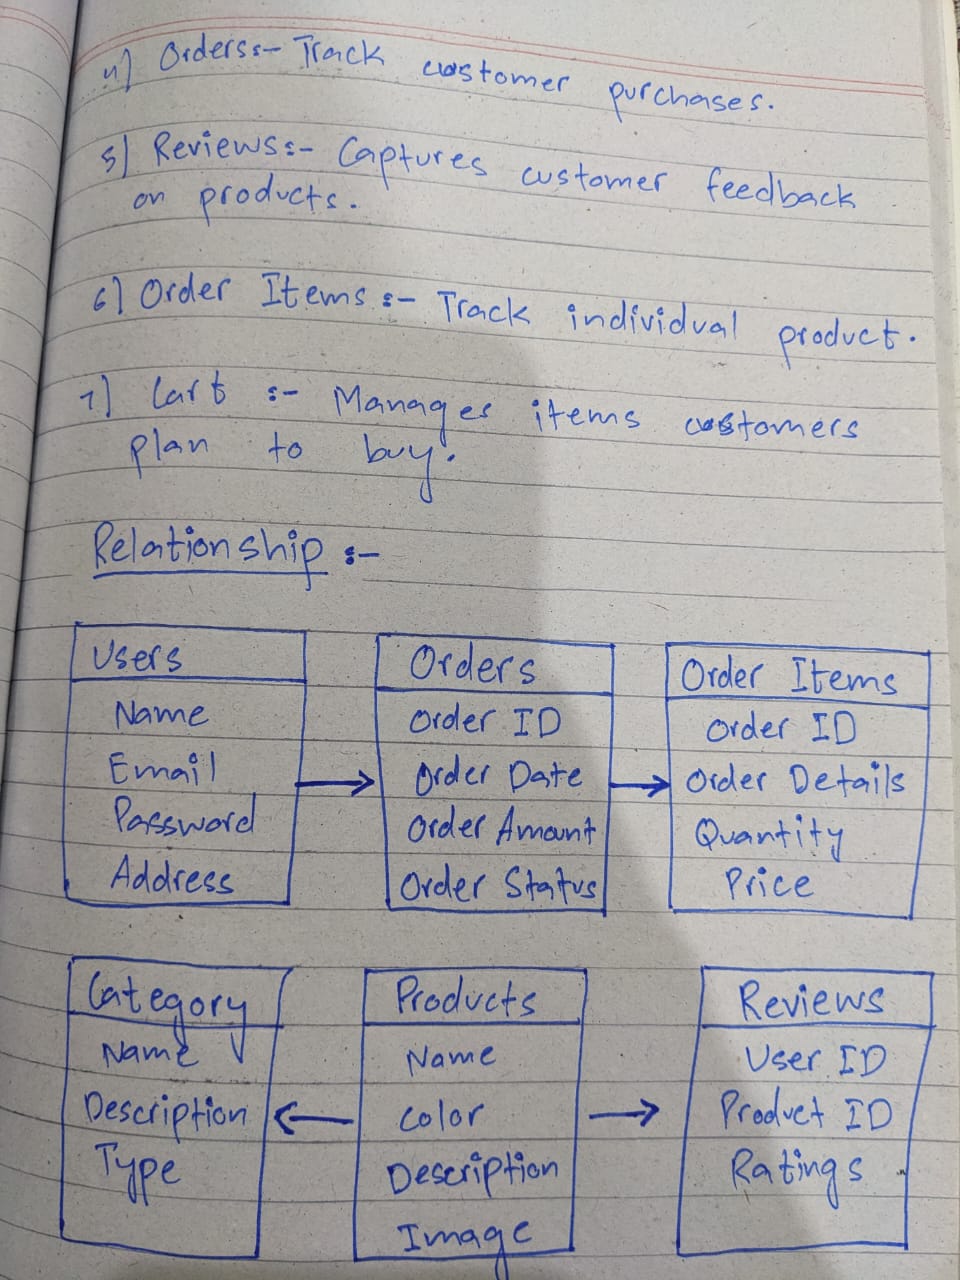 4] Orders:- Track customer purchases.
5] Reviews:- Captures customer feedback
on products.
6] Order Items :- Track individual product.
7] Cart :- Manages items customers
plan to buy.
Relationship :-
Users
Name
Email
Password
Address
Orders
Order ID
Order Date
Order Amount
Order Status
Order Items
Order ID
Order Details
Quantity
Price
Category
Name
Description
Type
Products
Name
Color
Description
Image
Reviews
User ID
Product ID
Ratings